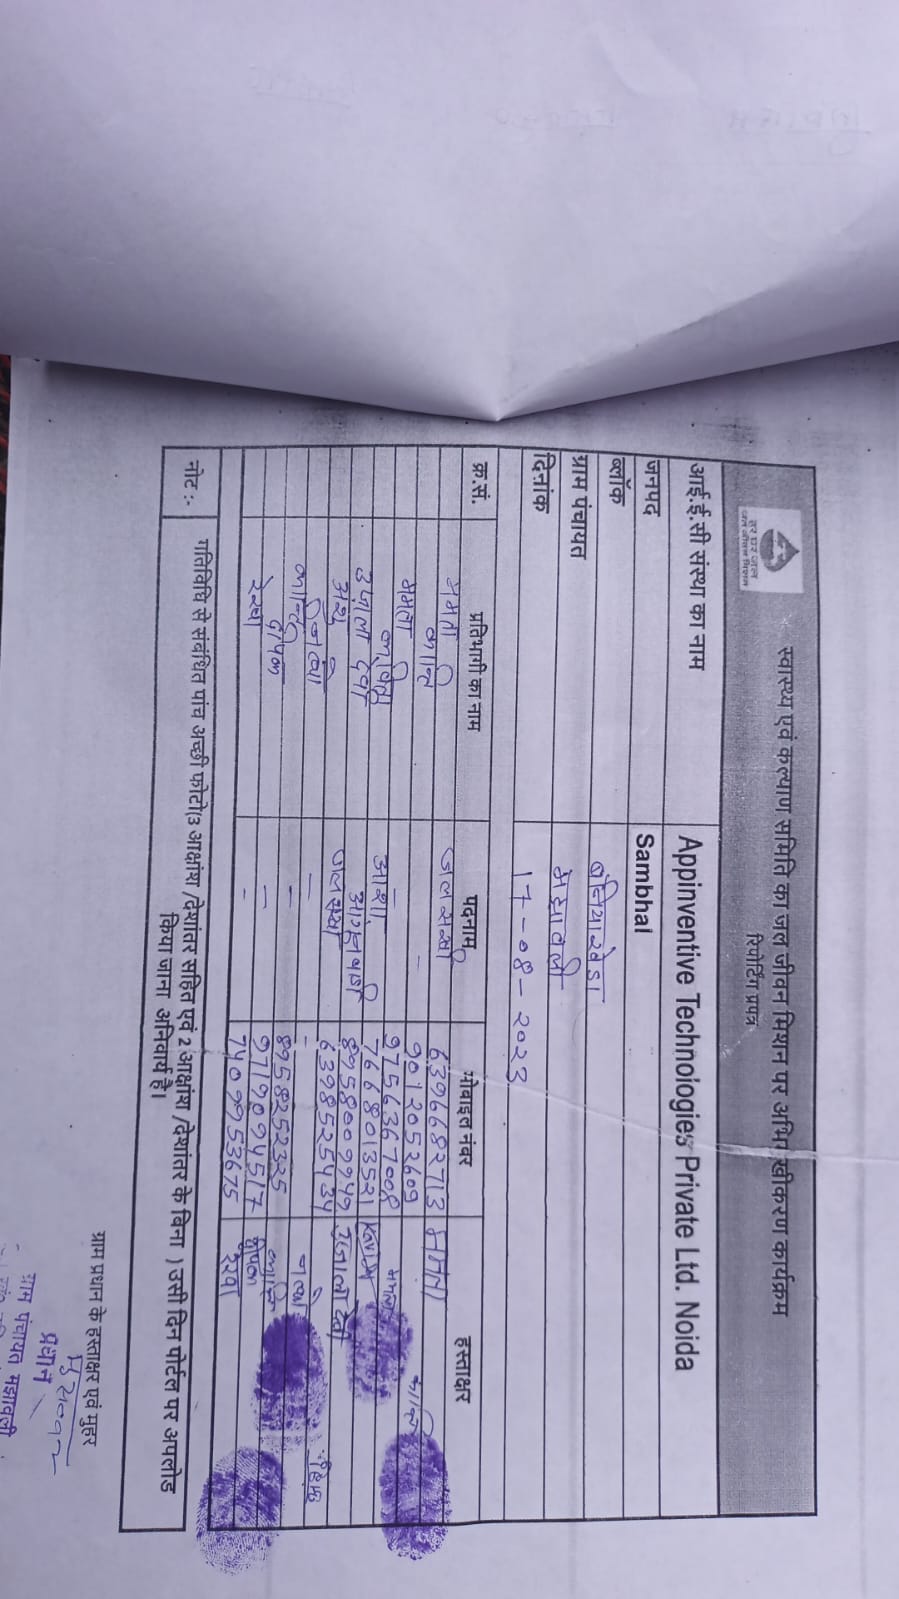 हर घर जल
जल जीवन मिशन
स्वास्थ्य एवं कल्याण समिति का जल जीवन मिशन पर अभिमुखीकरण कार्यक्रम
रिपोर्टिंग प्रपत्र
आई.ई.सी संस्था का नाम Appinventive Technologies Private Ltd. Noida
जनपद Sambhal
ब्लॉक बनियाखेडा
ग्राम पंचायत मझावली
दिनांक 17-08-2023
क्र.सं. प्रतिभागी का नाम पदनाम मोबाइल नंबर हस्ताक्षर
ममता जल सखी 6396682713 ममता
- 9012052609
ममता - 9756367008 ममता
कविता आशा 7668013521 Kavita
उजाला देवी 8958009949 उजाला देवी
जल सखी 6398525434
- -
- 8958252325
दीपक - 9719094517 दीपक
रेखा - 7409953675 रेखा
नोट :- गतिविधि से संबंधित पांच अच्छी फोटो(3 आक्षांश /देशांतर सहित एवं 2 आक्षांश /देशांतर के बिना ) उसी दिन पोर्टल पर अपलोड
किया जाना अनिवार्य है।
ग्राम प्रधान के हस्ताक्षर एवं मुहर
प्रधान
ग्राम पंचायत मझावली